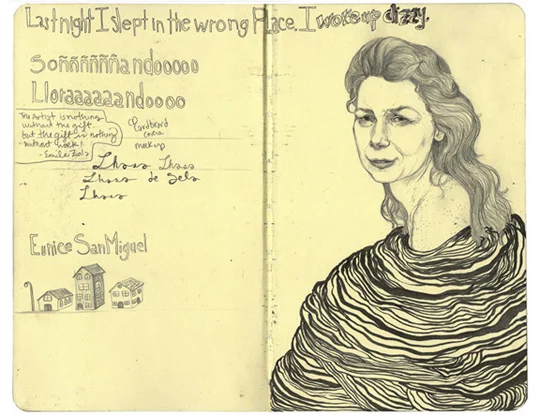 Last night I slept in the wrong Place. I woke up dizzy.
Soñññññññandooooo
Lloraaaaaaandoooo
The Artist is nothing
without the gift
but the gift is nothing
without work!
- Emile Zola
Cardboard
makeup
Lhasa Lhasa
Lhasa de Sela
Lhasa
Eunice San Miguel